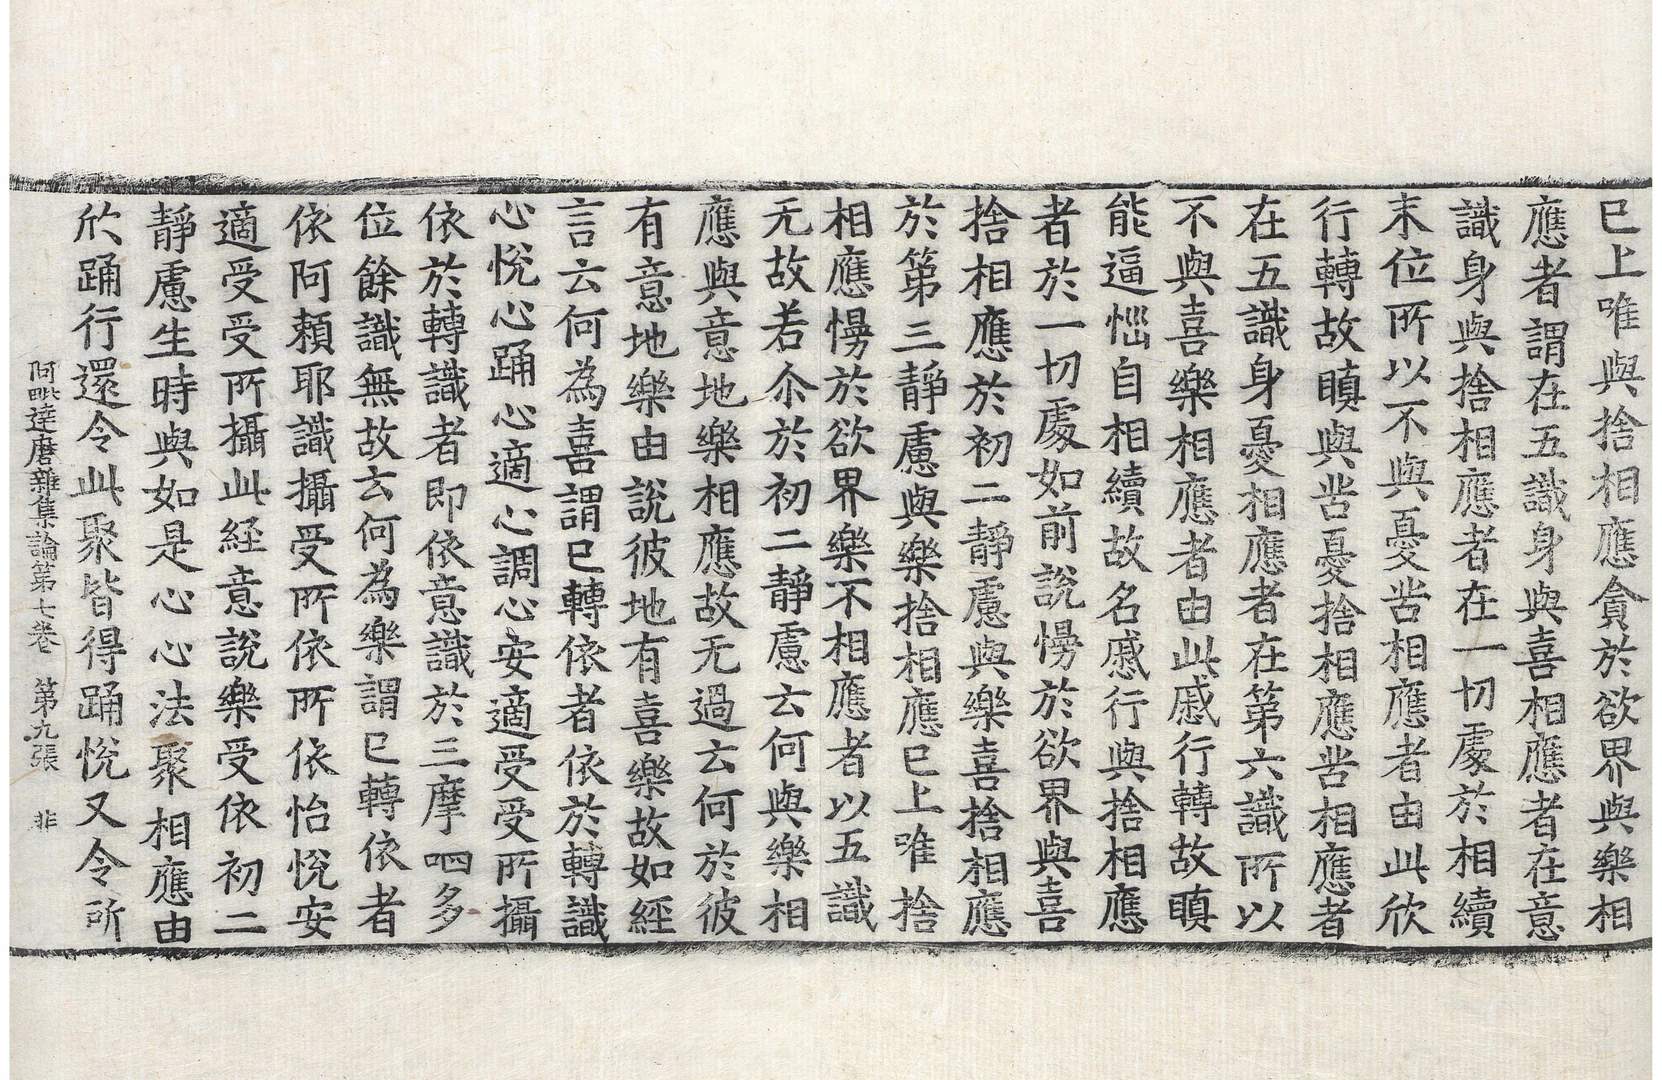 已上唯與捨相應貪於欲界與樂相
應者謂在五識身與喜相應者在意
識身與捨相應者在一切處於相續
末位所以不與憂苦相應者由此欣
行轉故瞋與苦憂捨相應苦相應者
在五識身憂相應者在第六識所以
不與喜樂相應者由此慼行轉故瞋
能逼惱自相續故名慼行與捨相應
者於一切處如前說慢於欲界與喜
捨相應於初二靜慮與樂喜捨相應
於第三靜慮與樂捨相應已上唯捨
相應慢於欲界樂不相應者以五識
无故若尒於初二靜慮云何與樂相
應與意地樂相應故无過云何於彼
有意地樂由說彼地有喜樂故如經
言云何為喜謂已轉依者依於轉識
心悅心踊心適心調心安適受受所攝
依於轉識者即依意識於三摩呬多
位餘識無故云何為樂謂已轉依者
依阿賴耶識攝受所依所依怡悅安
適受受所攝此経意說樂受依初二
靜慮生時與如是心心法聚相應由
欣踊行還令此聚皆得踊悅又令所
阿毗達磨雜集論第七卷 第九張 非